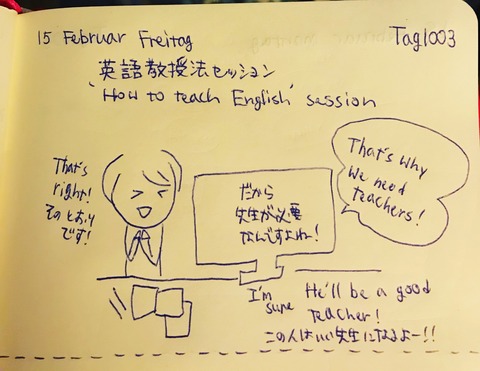 15 Februar Freitag
Tag1003
英語教授法セッション
'How to teach English' session
That's
right!
そのとおり
です!
だから
先生が必要
なんですよね!
That's why
We need
teachers!
I'm
sure
He'll be a good
teacher!
この人はいい先生になるよー!!